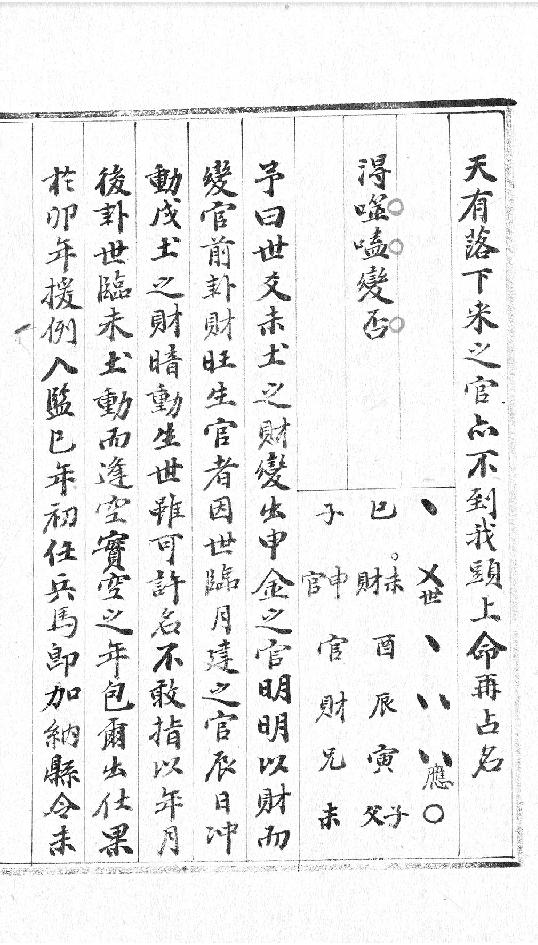 天有落下米之官亦不到我頭上命再占名
得噬嗑變否
丶 乂世 丶 丶丶 丶丶應 〇
巳 未財 酉 辰 寅 子父
子 申官 官 財 兄 未
予曰世爻未土之財變出申金之官明明以財而
變官前卦財旺生官者因世臨月建之官辰日冲
動戌土之財暗動生世雖可許名不敢指以年月
後卦世臨未土動而逢空實空之年包爾出仕果
於卯年援例入監巳年初任兵馬郎加納縣令未